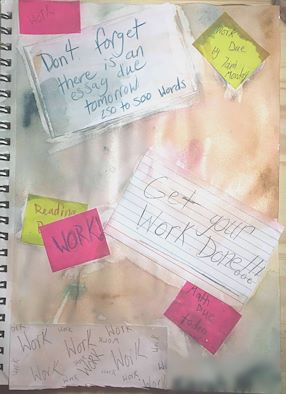 Work
Don't forget
there is an
essay due
tomorrow
250 to 500 words
Work
Due
by
Monday
Get your
Work Done!!!
Reading
WORK!
Math
Due
today
Work
Work
Work
Work
Work
Work
Work
Work
Work
Work
Work